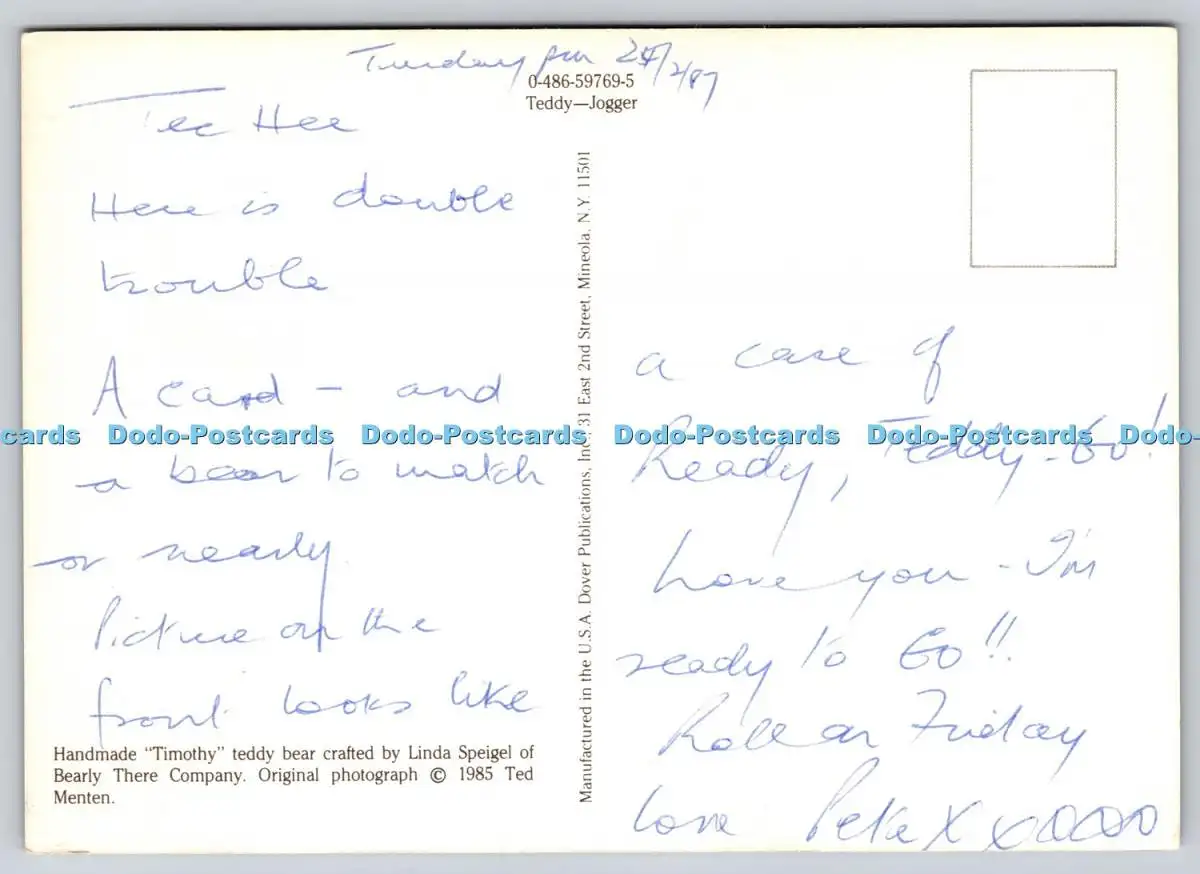 Tuesday pm 24/2/87
0-486-59769-5
Teddy—Jogger
Tee Hee
Here is double
trouble
A card - and
a bear to match
or nearly
Picture on the
front looks like
Handmade “Timothy” teddy bear crafted by Linda Speigel of
Bearly There Company. Original photograph © 1985 Ted
Menten.
Manufactured in the U.S.A. Dover Publications, Inc., 31 East 2nd Street, Mineola, N.Y. 11501
a case of
Ready, Teddy - Go!
Love you - I'm
ready to Go!!
Roll on Friday
Love Peta X x O O O O
cards Dodo-Postcards Dodo-Postcards Dodo-Postcards Dodo-Postcards Dodo-